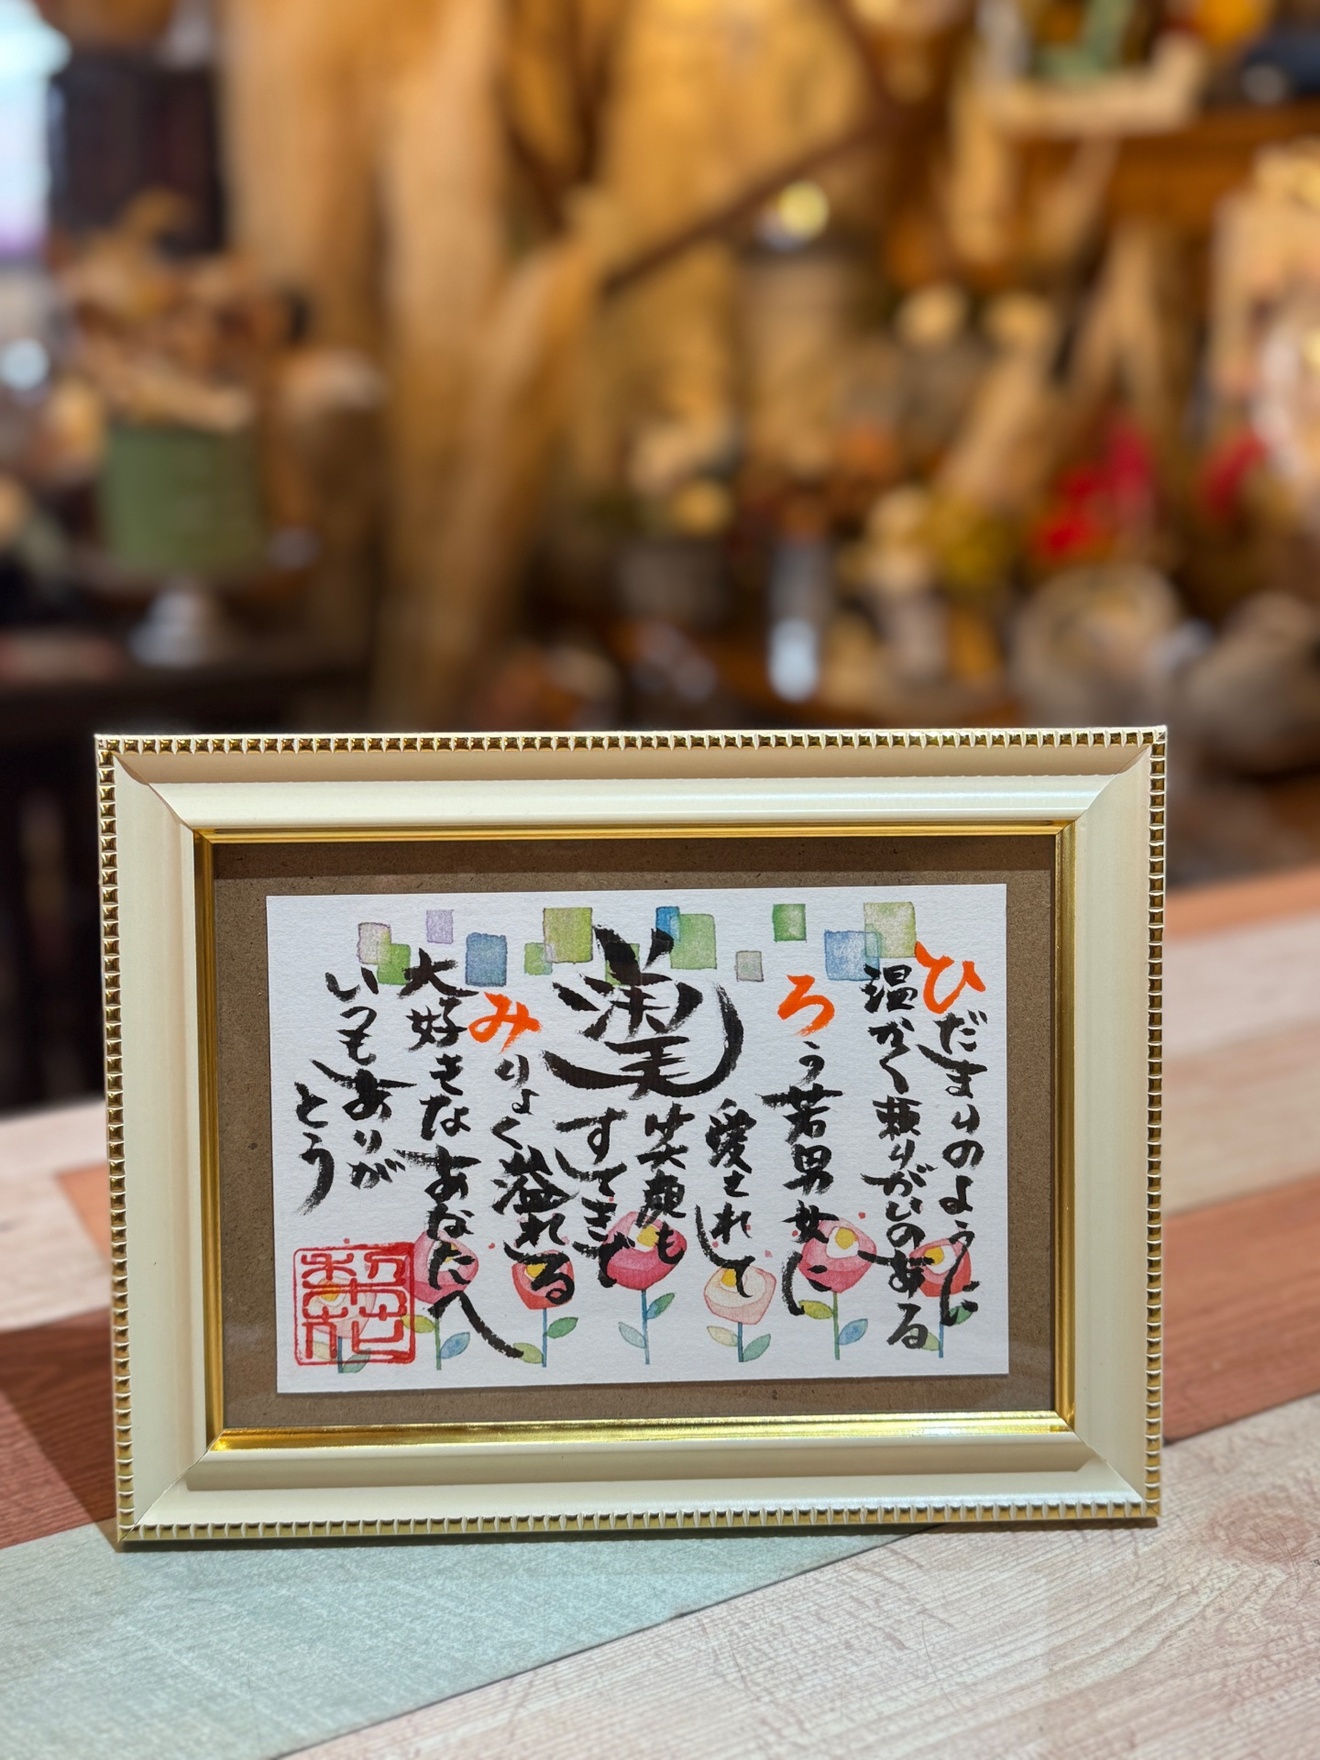 ひだまりのように
温かく頼りがいのある
ろう若男女に
愛されて
笑顔も
すてきで
みりょく溢れる
大好きなあなたへ
いつもありが
とう